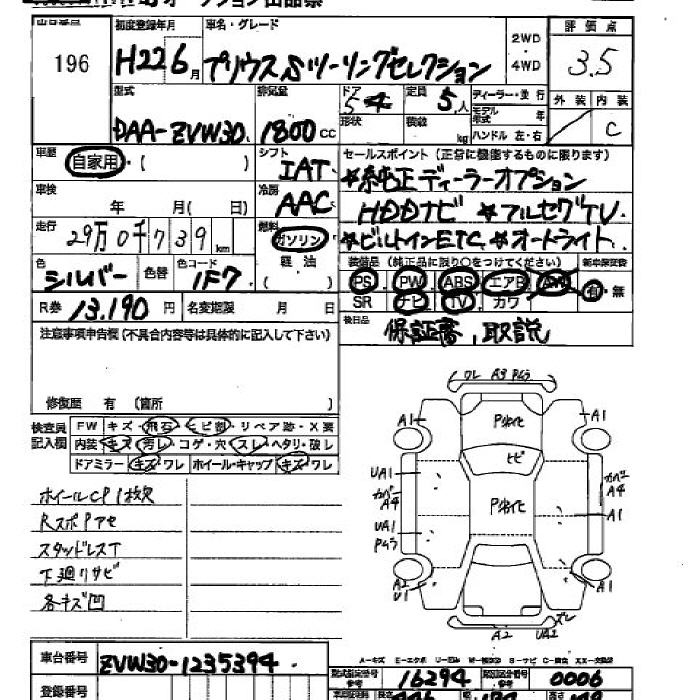 オークション出品票
出品番号 初度登録年月 車名・グレード 評価点
196 H22 6月 プリウス Sツーリングセレクション 2WD・4WD 3.5
型式 排気量 ドア 定員 ディーラー・並行 外装 内装
DAA-ZVW30 1800cc 5 4 5人 モデル年式 C
形状 積載 kg ハンドル 左・右
車歴 自家用・( ) シフト IAT セールスポイント(正常に機能するものに限ります)
*純正ディーラーオプション
車検 年 月(日) 冷房 AAC HDDナビ *フルセグTV
走行 29万0千739km 燃料 ガソリン・軽油( ) *ビルトインETC *オートライト
色 シルバー 色替 色コード 1F7 装備品(純正品に限り○をつけてください) 新車保証書
PS PW ABS エアB AW 有・無
SR ナビ TV カワ
R券 13,190円 名変期限 月 日 後日品 保証書、取説
注意事項申告欄(不具合内容等は具体的に記入して下さい)
修復歴 有(箇所 )
検査員記入欄 FW キズ・飛石・ヒビ割・リペア跡・X要
内装 キズ・汚レ・コゲ・穴・スレ・ヘタリ・破レ
ドアミラー キズ・ワレ ホイール・キャップ キズ・ワレ
ホイールCP1枚欠
RスポPアセ
スタッドレスT
下廻リサビ
各キズ凹
ワレ A3 Pムラ
A1 P劣化 A1
トビ
UA1 カバーA4 P劣化 カバーA4
UA1 Pムラ A1
A2 U1 A1
A2 UA2 ズレ
車台番号 ZVW30-1235394
登録番号
型式指定番号 参考 16294 類別区分番号 参考 0006